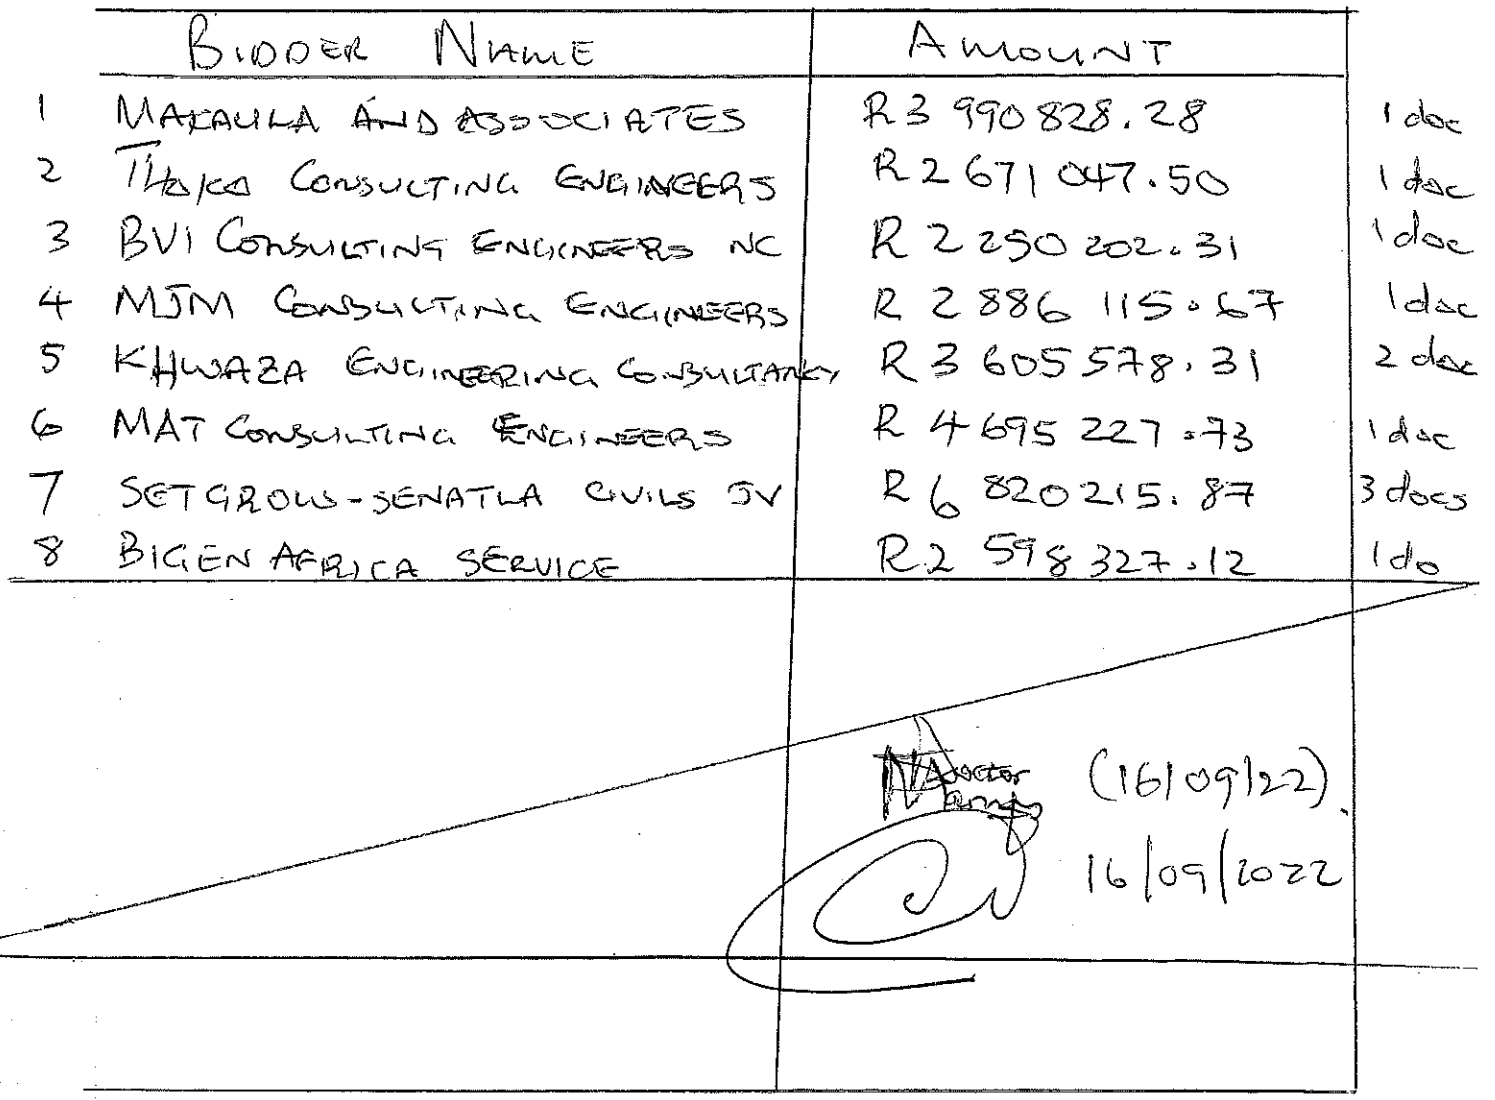 BIDDER NAME AMOUNT
1 MAKAULA AND ASSOCIATES R3 990 828.28 1 doc
2 CONSULTING ENGINEERS R2 671 047.50 1 doc
3 BVI CONSULTING ENGINEERS NC R 2 250 202.31 1 doc
4 MJM CONSULTING ENGINEERS R 2 886 115.67 1 doc
5 KHWAZA ENGINEERING CONSULTANCY R 3 605 578.31 2 doc
6 MAT CONSULTING ENGINEERS R 4 695 227.73 1 doc
7 SETGROW-SENATLA CIVILS JV R 6 820 215.87 3 docs
8 BIGEN AFRICA SERVICE R2 598 327.12 1 do
(16/09/22).
16/09/2022